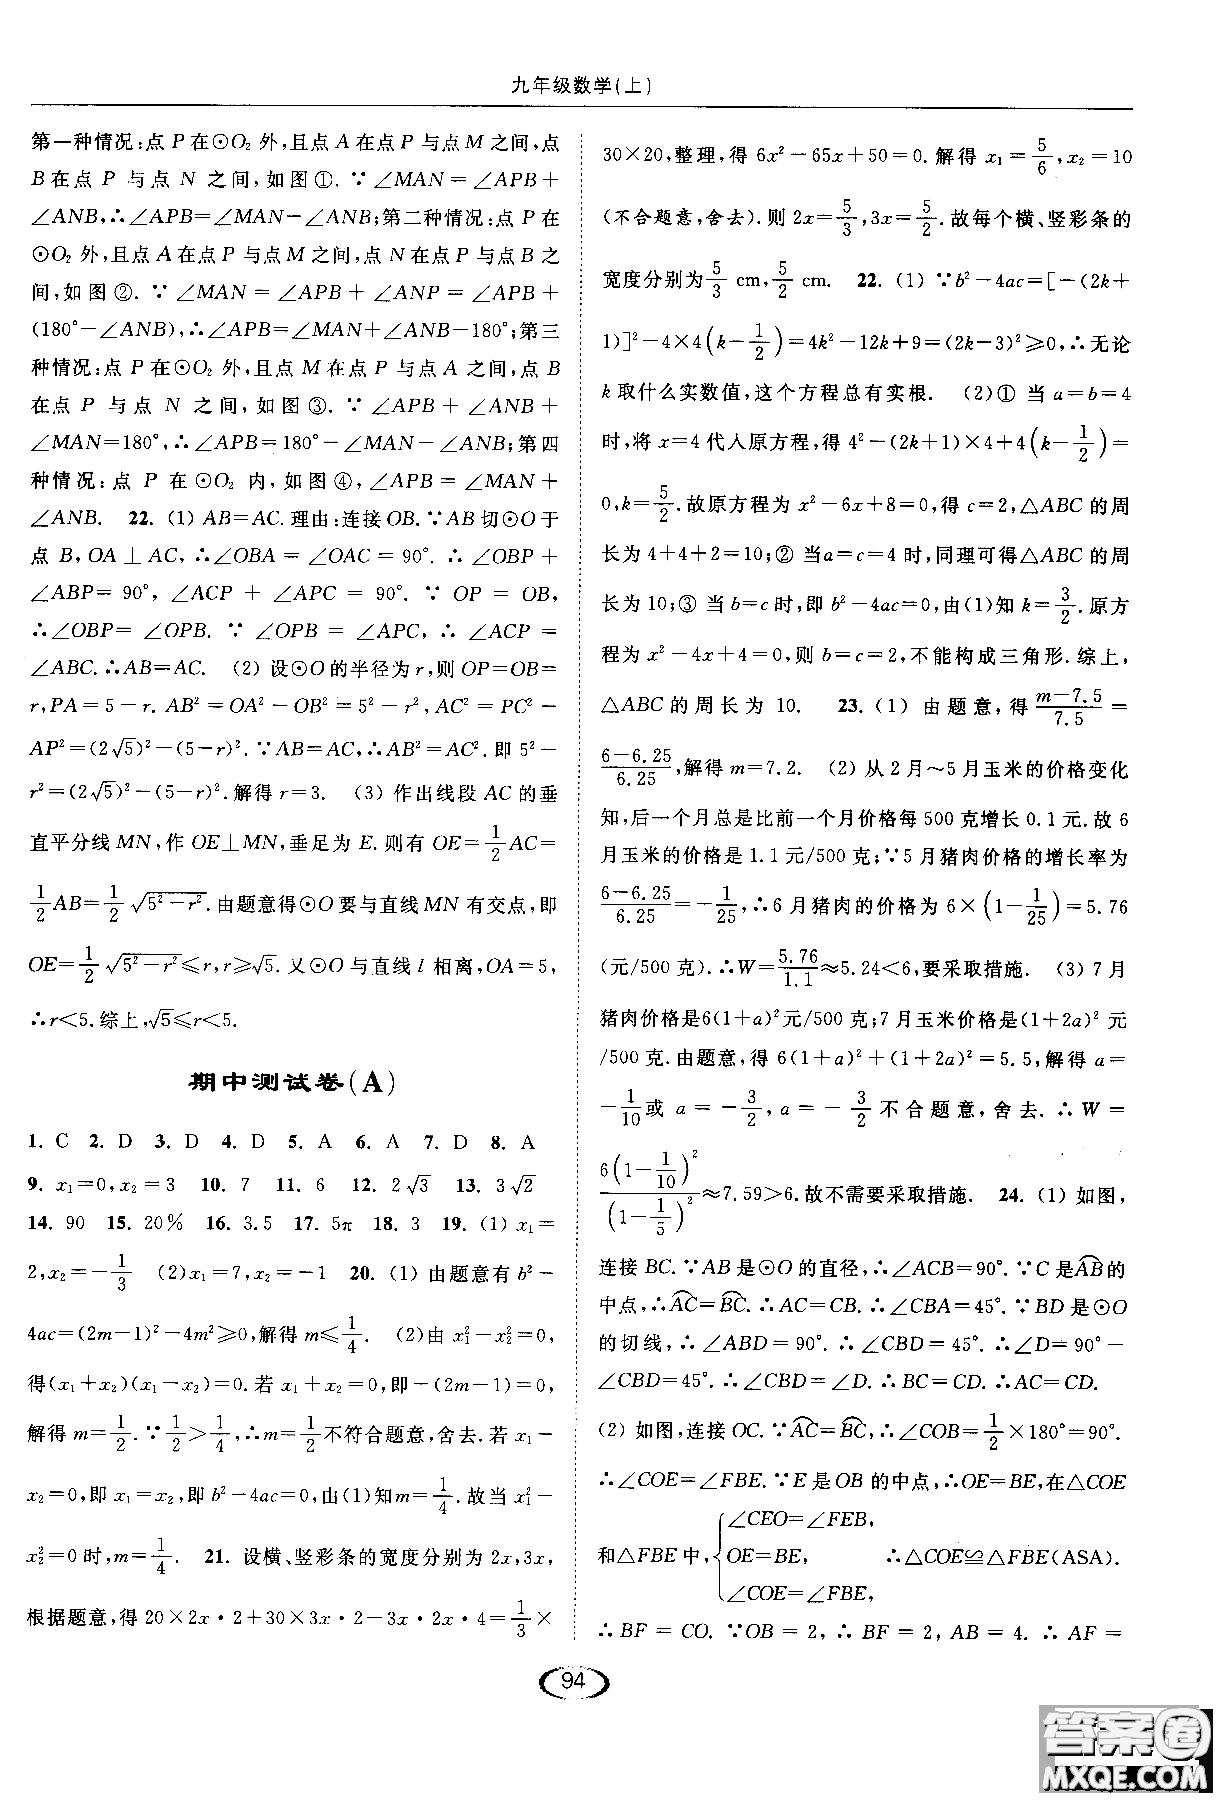 九年级数学(上)
第一种情况:点 P 在⊙O₂ 外,且点 A 在点 P 与点 M 之间,点
B 在点 P 与点 N 之间,如图①. ∵∠MAN=∠APB+
∠ANB,∴∠APB=∠MAN−∠ANB;第二种情况:点 P 在
⊙O₂ 外,且点 A 在点 P 与点 M 之间,点 N 在点 P 与点 B 之
间,如图②. ∵∠MAN=∠APB+∠ANP=∠APB+
(180°−∠ANB),∴∠APB=∠MAN+∠ANB−180°;第三
种情况:点 P 在⊙O₂ 外,且点 M 在点 P 与点 A 之间,点 B
在点 P 与点 N 之间,如图③. ∵∠APB+∠ANB+
∠MAN=180°,∴∠APB=180°−∠MAN−∠ANB;第四
种情况:点 P 在⊙O₂ 内,如图④,∠APB=∠MAN+
∠ANB. 22. (1) AB=AC.理由:连接 OB.∵AB 切⊙O 于
点 B,OA⊥AC,∴∠OBA=∠OAC=90°. ∴∠OBP+
∠ABP=90°,∠ACP+∠APC=90°. ∵OP=OB,
∴∠OBP=∠OPB. ∵∠OPB=∠APC,∴∠ACP=
∠ABC.∴AB=AC. (2) 设⊙O 的半径为 r,则 OP=OB=
r,PA=5−r. AB²=OA²−OB²=5²−r²,AC²=PC²−
AP²=(2√5)²−(5−r)². ∵AB=AC,∴AB²=AC².即 5²−
r²=(2√5)²−(5−r)².解得 r=3. (3) 作出线段 AC 的垂
直平分线 MN,作 OE⊥MN,垂足为 E.则有 OE=1/2 AC=
1/2 AB=1/2 √(5²−r²).由题意得⊙O 要与直线 MN 有交点,即
OE=1/2 √(5²−r²)≤r,r≥√5.又⊙O 与直线 l 相离,OA=5,
∴r<5.综上,√5≤r<5.
期中测试卷(A)
1. C 2. D 3. D 4. D 5. A 6. A 7. D 8. A
9. x₁=0,x₂=3 10. 7 11. 6 12. 2√3 13. 3√2
14. 90 15. 20% 16. 3.5 17. 5π 18. 3 19. (1) x₁=
2,x₂=−1/3 (2)x₁=7,x₂=−1 20. (1) 由题意有 b²−
4ac=(2m−1)²−4m²≥0,解得 m≤1/4. (2)由 x₁²−x₂²=0,
得(x₁+x₂)(x₁−x₂)=0.若 x₁+x₂=0,即−(2m−1)=0,
解得 m=1/2. ∵1/2>1/4,∴m=1/2不符合题意,舍去.若 x₁−
x₂=0,即 x₁=x₂,即 b²−4ac=0,由(1)知m=1/4.故当 x₁²−
x₂²=0 时,m=1/4. 21. 设横、竖彩条的宽度分别为 2x,3x,
根据题意,得 20×2x·2+30×3x·2−3x·2x·4=1/3×
30×20,整理,得 6x²−65x+50=0.解得 x₁=5/6,x₂=10
(不合题意,舍去).则 2x=5/3,3x=5/2.故每个横、竖彩条的
宽度分别为5/3 cm,5/2 cm. 22. (1) ∵b²−4ac=[−(2k+
1)]²−4×4(k−1/2)=4k²−12k+9=(2k−3)²≥0,∴无论
k 取什么实数值,这个方程总有实根. (2)① 当 a=b=4
时,将 x=4 代入原方程,得 4²−(2k+1)×4+4(k−1/2)=
0,k=5/2.故原方程为 x²−6x+8=0,得 c=2,△ABC 的周
长为 4+4+2=10;② 当a=c=4 时,同理可得△ABC 的周
长为 10;③ 当 b=c 时,即 b²−4ac=0,由(1)知 k=3/2.原方
程为 x²−4x+4=0,则 b=c=2,不能构成三角形.综上,
△ABC 的周长为 10. 23. (1) 由题意,得 (m−7.5)/7.5=
(6−6.25)/6.25,解得 m=7.2. (2) 从 2 月~5 月玉米的价格变化
知,后一个月总是比前一个月价格每 500 克增长 0.1 元.故 6
月玉米的价格是 1.1 元/500 克;∵5 月猪肉价格的增长率为
(6−6.25)/6.25=−1/25,∴6 月猪肉的价格为 6×(1−1/25)=5.76
(元/500 克).∴W=5.76/1.1≈5.24<6,要采取措施. (3) 7 月
猪肉价格是6(1+a)²元/500 克;7 月玉米价格是(1+2a)² 元
/500 克.由题意,得 6(1+a)²+(1+2a)²=5.5,解得 a=
−1/10或 a=−3/2,a=−3/2不合题意,舍去.∴W=
6(1−1/10)²/(1−1/5)²≈7.59>6.故不需要采取措施. 24. (1) 如图,
连接 BC.∵AB 是⊙O 的直径,∴∠ACB=90°.∵C 是A͡B的
中点,∴A͡C=B͡C.∴AC=CB.∴∠CBA=45°.∵BD 是⊙O
的切线,∴∠ABD=90°.∴∠CBD=45°.∴∠D=90°−
∠CBD=45°.∴∠CBD=∠D.∴BC=CD.∴AC=CD.
(2) 如图,连接 OC.∵A͡C=B͡C,∴∠COB=1/2×180°=90°.
∴∠COE=∠FBE.∵E 是 OB 的中点,∴OE=BE,在△COE
和△FBE 中,{∠CEO=∠FEB, OE=BE, ∠COE=∠FBE, ∴△COE≌△FBE(ASA).
∴BF=CO. ∵OB=2,∴BF=2,AB=4. ∴AF=
94
答案圈
MXQE.COM